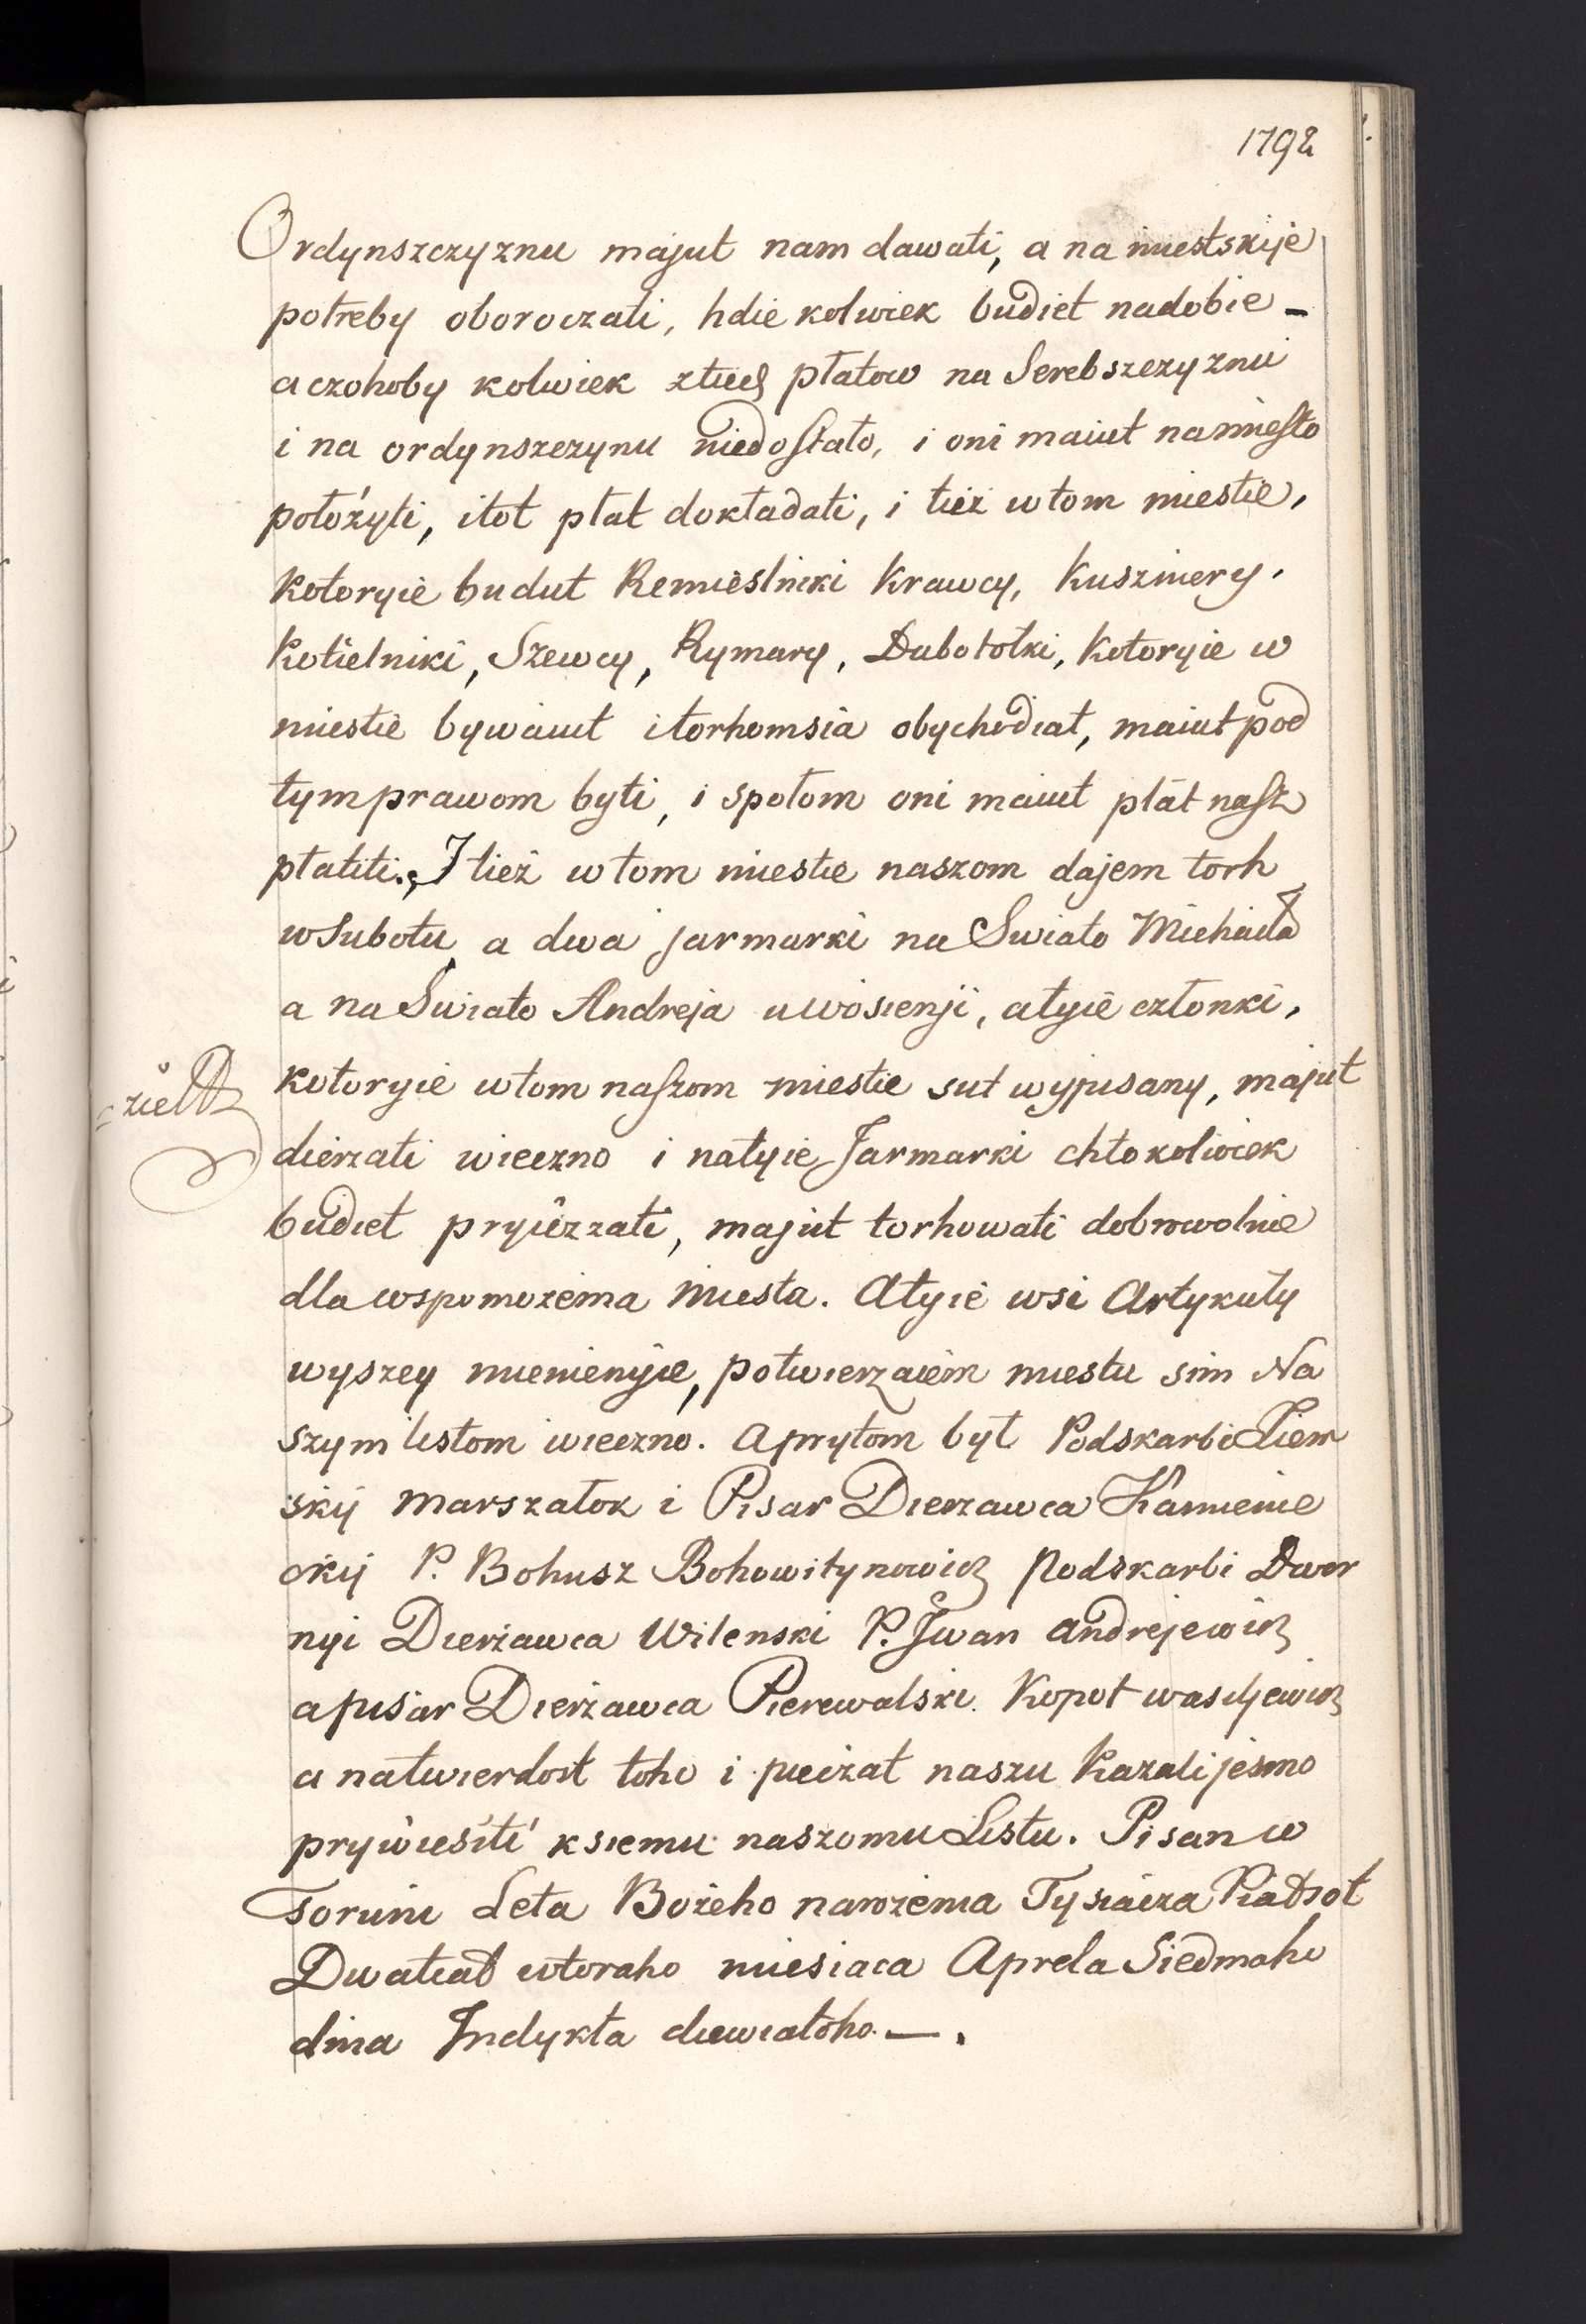 1792
Ordynszczyznu majut nam dawati, a na miestskije
potreby oboroczati, hdie kolwiek budiet nadobie —
a czohoby kolwiek ztych płatow na Serebszczyznu
i na ordynszczynu niedostało, i oni maiut namiesto
położyti, itot płat dokładati, i tież wtom miestie,
kotoryie budut Remieslniki Krawcy, Kuszniery,
Kotielniki, Szewcy, Rymary, Dubotołki, Kotoryie w
miestie bywaiut i torhomsia obychodiat, maiut pod
tym prawom byti, i społom oni maiut płat nasz
płatiti. I tież wtom miestie naszom dajem torh
wSubotu, a dwa jarmarki na Swiato Michaiła
a na Swiato Andreja uwosienji, atyie członki,
kotoryie wtom naszom miestie sut wypisany, majut
dierżati wieczno i natyie Jarmarki chtokolwiek
budiet pryieżżati, majut torhowati dobrowolnie
dla wspomożenia miesta. Atyie wsi Artykuły
wyszey mienienyie, potwierzaiem miestu sim Na
szym listom wieczno. Aprytom był Podskarbi Ziem
skij Marszałok i Pisar Dierzawca Kamienie
ckij P. Bohusz Bohowitynowicz Podskarbi Dwor
nyi Dierżawca Wilenski P. Iwan Andrejewicz
apisar Dierżawca Pierewalski. Kopot wasiljewicz
a natwierdost toho i pieczat naszu Kazali jesmo
prywiesiti ksiemu naszomu Listu. Pisan w
Toruniu Leta Bożeho narożenia Tysiacza Piatsot
Dwatcat wtoraho miesiaca Aprela Siedmaho
dnia Indykta dewiatoho —.